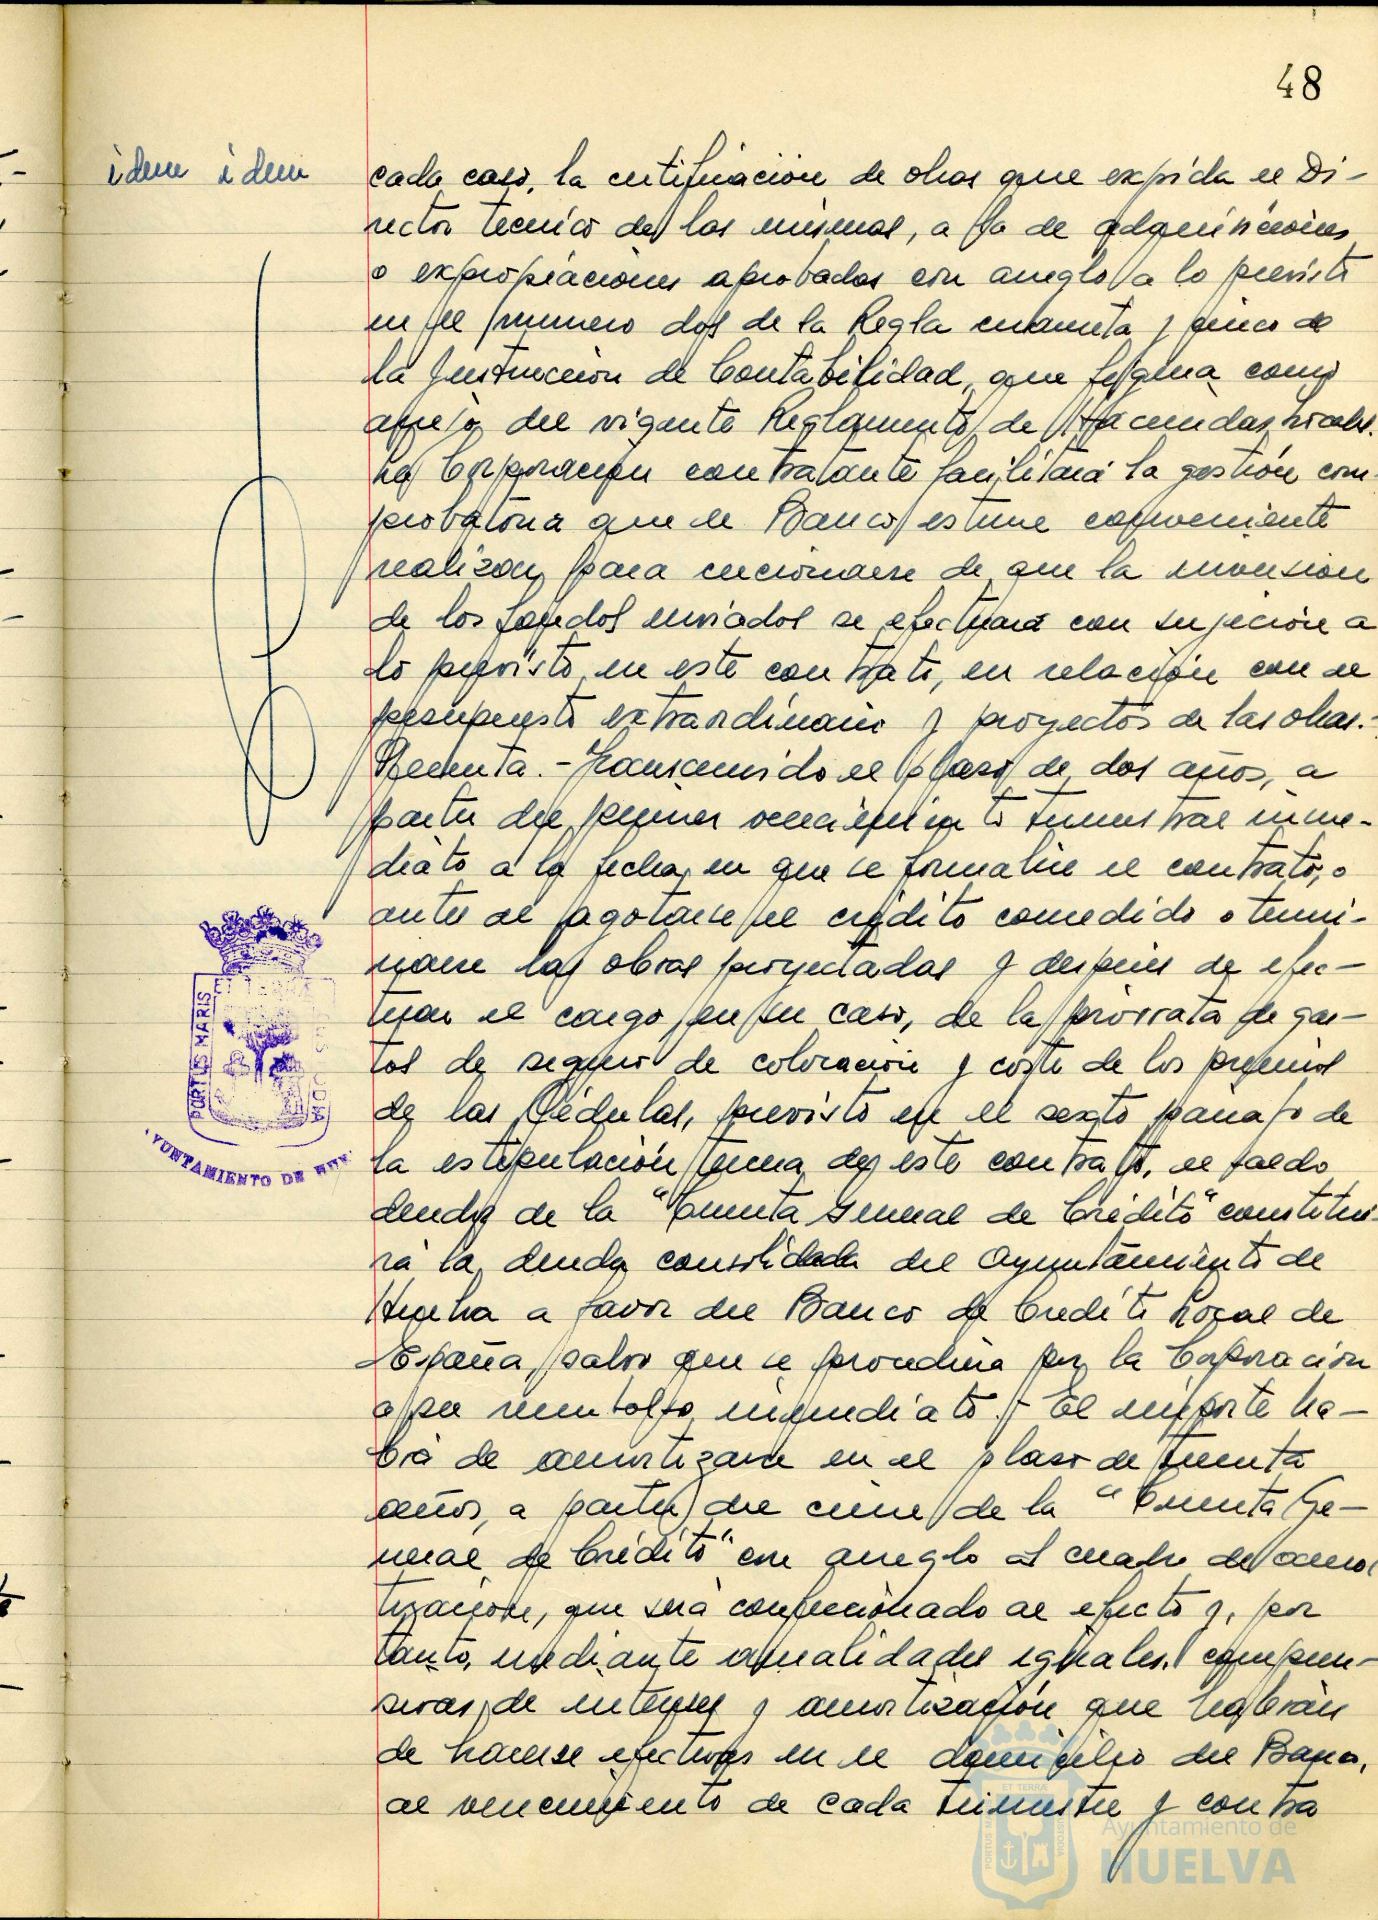 48
idem idem
cada caso, la certificación de obras que expida el Di-
rector técnico de las mismas, o la de adquisiciones
o expropiaciones aprobadas con arreglo a lo previsto
en el número dos de la Regla cuarenta y cinco de
la Instrucción de Contabilidad, que figura como
anejo del vigente Reglamento de Haciendas Locales.
La Corporación contratante facilitará la gestión com-
probatoria que el Banco estime conveniente
realizar para cerciorarse de que la inversión
de los fondos enviados se efectuará con sujeción a
lo previsto en este contrato, en relación con el
presupuesto extraordinario y proyectos de las obras.-
Transcurrido el plazo de dos años, a
partir del primer vencimiento trimestral inme-
diato a la fecha en que se formalice el contrato, o
antes al agotarse el crédito concedido o termi-
narse las obras proyectadas y después de efec-
tuar el cargo, en su caso, de la prorrata de gas-
tos de seguro de colocación y coste de los premios
de las Cédulas, previsto en el sexto párrafo de
la estipulación tercera de este contrato, el saldo
deudor de la "Cuenta General de Crédito" constitui-
rá la deuda consolidada del Ayuntamiento de
Huelva a favor del Banco de Crédito Local de
España, salvo que se procediera por la Corporación
a su reembolso inmediato.- El importe ha-
brá de amortizarse en el plazo de treinta
años, a partir del cierre de la "Cuenta Ge-
neral de Crédito" con arreglo al cuadro de amor
tización, que será confeccionado al efecto y, por
tanto, mediante anualidades iguales, compren-
sivas de interés y amortización que habrán
de hacerse efectivas en el domicilio del Banco,
al vencimiento de cada trimestre y contra
PORTUS MARIS
ET TERRAE
CUSTODIA
AYUNTAMIENTO DE
Ayuntamiento de
HUELVA